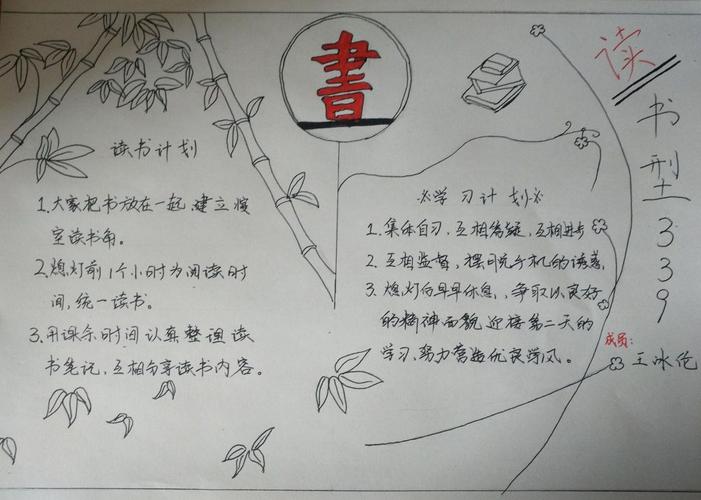 書
读书计划
1.大家把书放在一起,建立寝
室读书角。
2.熄灯前1个小时为阅读时
间,统一读书。
3.用课余时间认真整理读
书笔记,互相分享读书内容。
学习计划
1.集体自习,互相答疑,互相进步
2.互相监督,摆脱手机的诱惑,
3.熄灯后早早休息,争取以良好
的精神面貌迎接第二天的
学习,努力营造优良学风。
读书型339
成员:
王冰伦